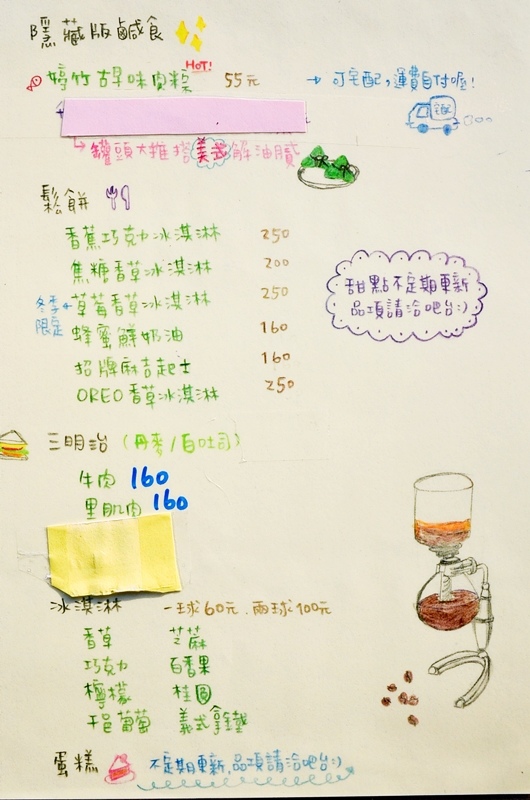 隱藏版鹹食
HOT!
婷竹古早味肉粽 55元 → 可宅配,運費自付喔!
宅配
↳罐頭大推搭美式解油膩
鬆餅
香蕉巧克力冰淇淋 250
焦糖香草冰淇淋 200
冬季限定 草莓香草冰淇淋 250
蜂蜜鮮奶油 160
招牌麻吉起士 160
OREO香草冰淇淋 250
甜點不定期更新
品項請洽吧台:)
三明治 (丹麥/白吐司)
牛肉 160
里肌肉 160
冰淇淋 一球60元.兩球100元
香草 芝麻
巧克力 百香果
檸檬 桂圓
干邑葡萄 義式拿鐵
蛋糕 不定期更新,品項請洽吧台:)